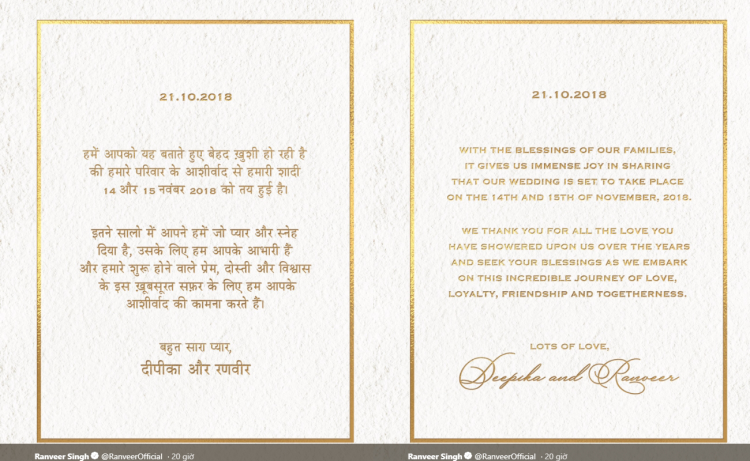 21.10.2018
हमें आपको यह बताते हुए बेहद ख़ुशी हो रही है
की हमारे परिवार के आशीर्वाद से हमारी शादी
14 और 15 नवंबर 2018 को तय हुई है।
इतने सालो में आपने हमें जो प्यार और स्नेह
दिया है, उसके लिए हम आपके आभारी हैं
और हमारे शुरू होने वाले प्रेम, दोस्ती और विश्वास
के इस ख़ूबसूरत सफ़र के लिए हम आपके
आशीर्वाद की कामना करते हैं।
बहुत सारा प्यार,
दीपीका और रणवीर
Ranveer Singh @RanveerOfficial · 20 giờ
21.10.2018
WITH THE BLESSINGS OF OUR FAMILIES,
IT GIVES US IMMENSE JOY IN SHARING
THAT OUR WEDDING IS SET TO TAKE PLACE
ON THE 14TH AND 15TH OF NOVEMBER, 2018.
WE THANK YOU FOR ALL THE LOVE YOU
HAVE SHOWERED UPON US OVER THE YEARS
AND SEEK YOUR BLESSINGS AS WE EMBARK
ON THIS INCREDIBLE JOURNEY OF LOVE,
LOYALTY, FRIENDSHIP AND TOGETHERNESS.
LOTS OF LOVE,
Deepika and Ranveer
Ranveer Singh @RanveerOfficial · 20 giờ